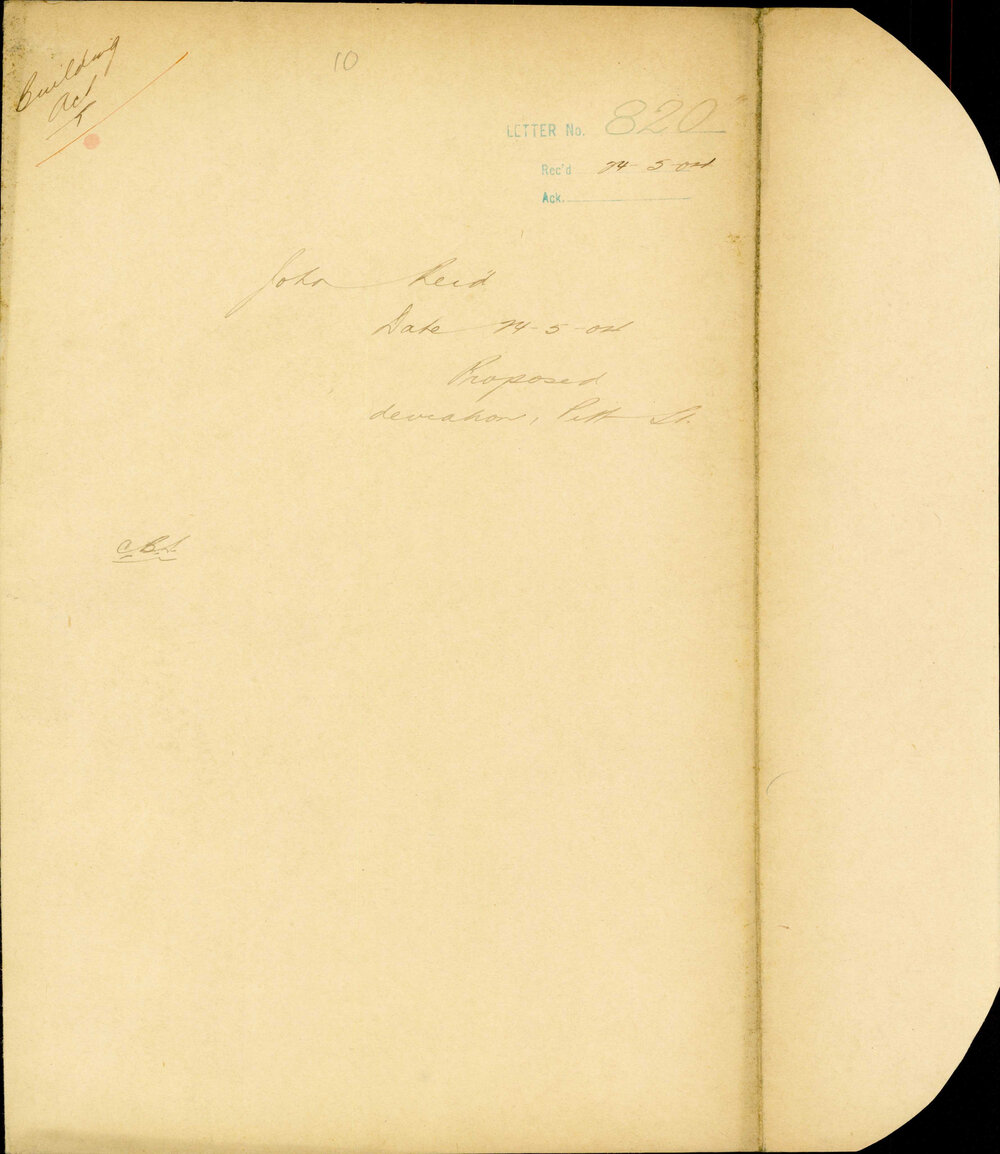 Building
Act
10
LETTER No. 820
Rec'd 24-5-04
Ack.
John Reid
Date 24-5-04
Proposed
deviation, Pitt St.